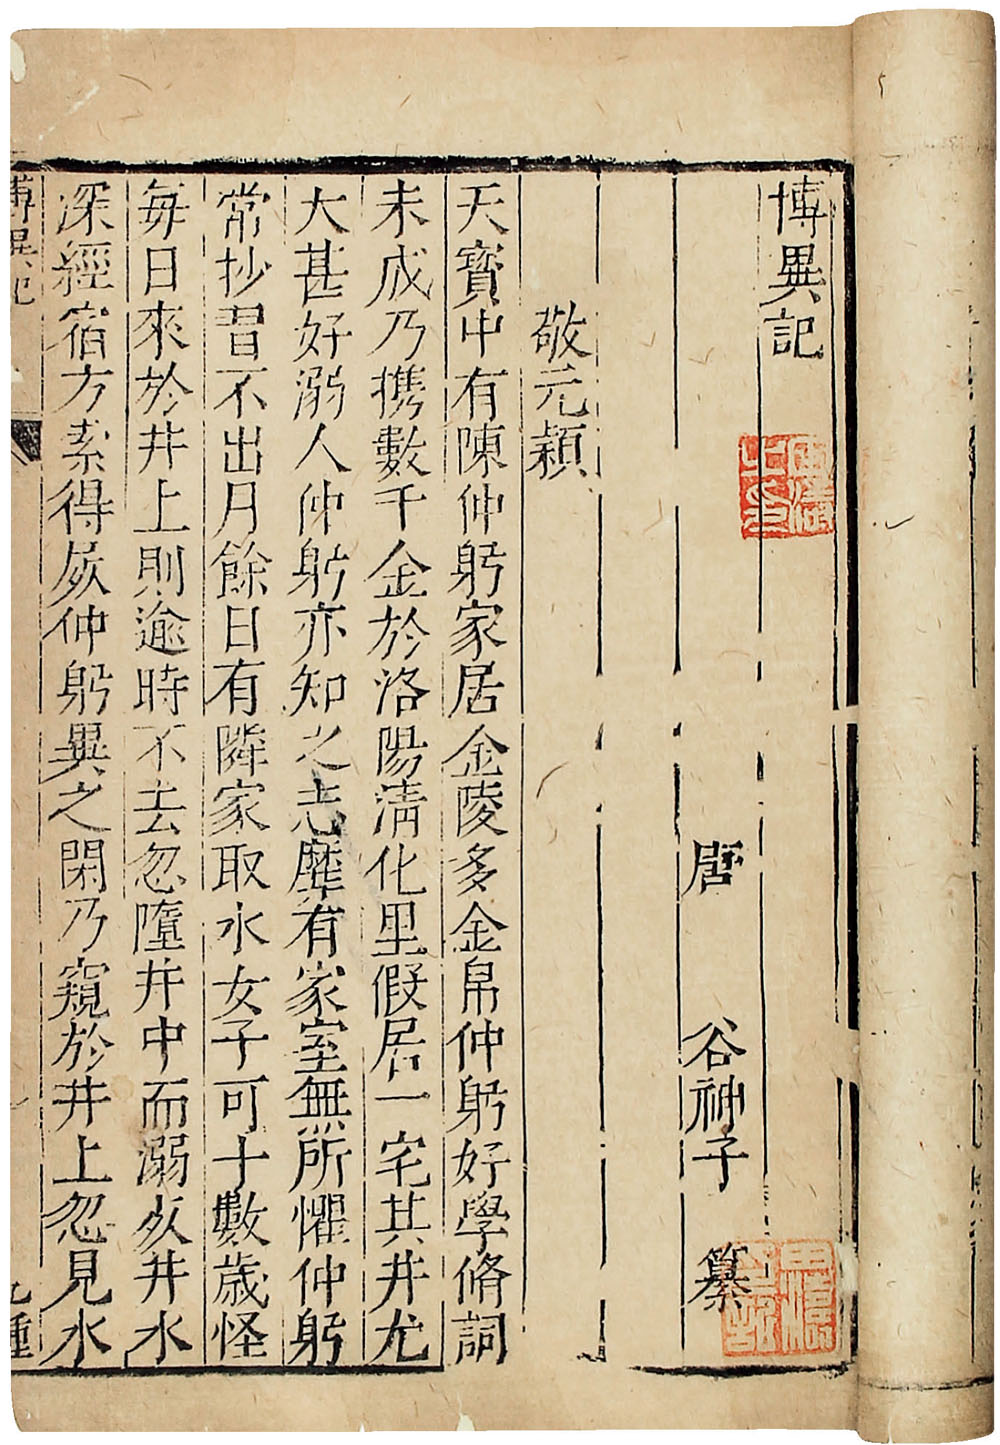 博異記
唐 谷神子 纂
敬元穎
天寶中有陳仲躬家居金陵多金帛仲躬好學脩詞
未成乃携數千金於洛陽清化里假居一宅其井尤
大甚好溺人仲躬亦知之志靡有家室無所懼仲躬
常抄習不出月餘日有隣家取水女子可十數歲怪
每日來於井上則逾時不去忽墮井中而溺死井水
深經宿方索得屍仲躬異之閑乃窺於井上忽見水
博異記